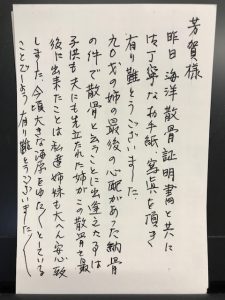 芳賀様
昨日海洋散骨証明書と共に
ご丁寧なお手紙、写真を頂き
有り難とうございました
九〇才の姉の最後の心配があった納骨
の件で散骨と云うことに出逢えたるは
子供も夫にも先立たれた姉がこの散骨を最
後に出来たことは私達姉妹も大へん安心致
しました、今頃大きな海原をゆた〱としている
ことでしょう 有り難とうございました